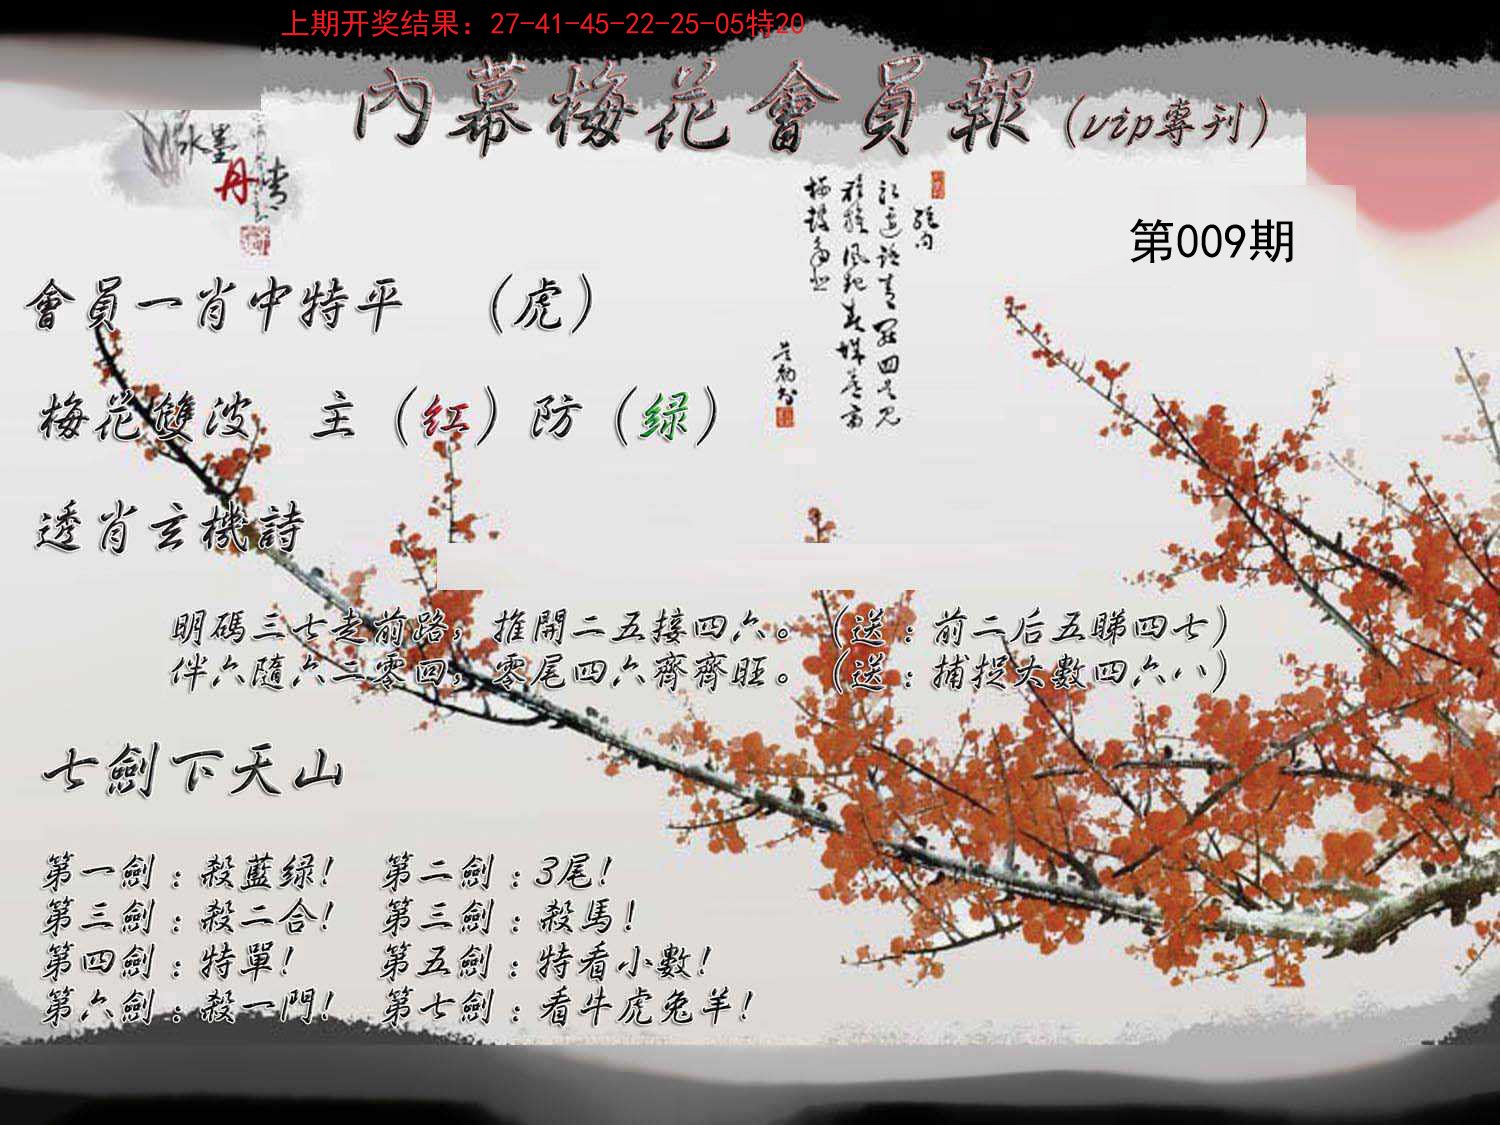 上期开奖结果：27-41-45-22-25-05特20
內幕梅花會員報（vip專刊）
水墨
丹
第009期
會員一肖中特平 （虎）
梅花雙波 主（红）防（绿）
透肖玄機詩
明碼三七走前路，推開二五接四六。（送：前二后五睇四七）
伴六隨六二零四，零尾四六齊齊旺。（送：捕捉大數四六八）
七劍下天山
第一劍：殺藍绿！ 第二劍：3尾！
第三劍：殺二合！ 第三劍：殺馬！
第四劍：特單！ 第五劍：特看小數！
第六劍：殺一門！ 第七劍：看牛虎兔羊！